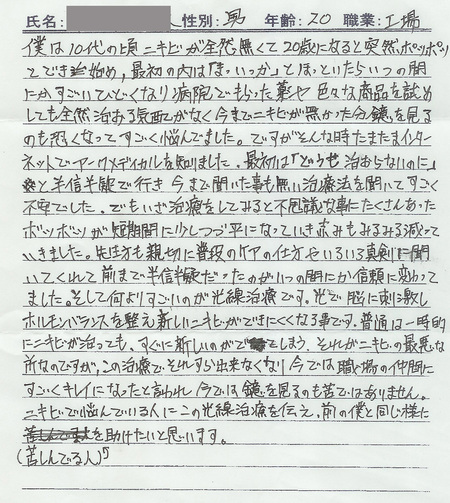 氏名: 人 性別: 男 年齢: 20 職業: 工場
僕は10代の頃ニキビが全然無くて20歳になると突然、ポツポツ
とでき始め、最初の内は「まっいっか」とほっといたらいつの間
にかすごいひどくなり病院でもらった薬や色々な商品を試め
しても全然治る気配がなく今までニキビが無かった分鏡を見る
のも恐くなってすごく悩んでました。ですがそんな時たまたまインター
ネットでアークメディカルを知りました。最初は「どうせ治おらないのに」
と半信半疑で行き今まで聞いた事も無い治療法を聞いてすごく
不安でした。でもいざ治療をしてみると不思議な事にたくさんあった
ボツボツが短期間に少しづつ平になっていき赤みもみるみる減って
いきました。先生方も親切に普段のケアの仕方やいろいろ真剣に聞
いてくれて前まで半信半疑だったのがいつの間にか信頼に変わって
ました。そして何よりすごいのが光線治療です。光で脳に刺激し
ホルモンバランスを整え新しいニキビができにくくなる事です。普通は一時的
にニキビが治っても、すぐに新しいのがでてしまう、それがニキビの最悪な
所なのですが、この治療でそれすら出来なくなり今では職場の仲間に
すごくキレイになったと言われ今では鏡を見るのも苦ではありません。
ニキビで悩んでいる人にこの光線治療を伝え、前の僕と同じ様に
を助けたいと思います。
(苦しんでる人)